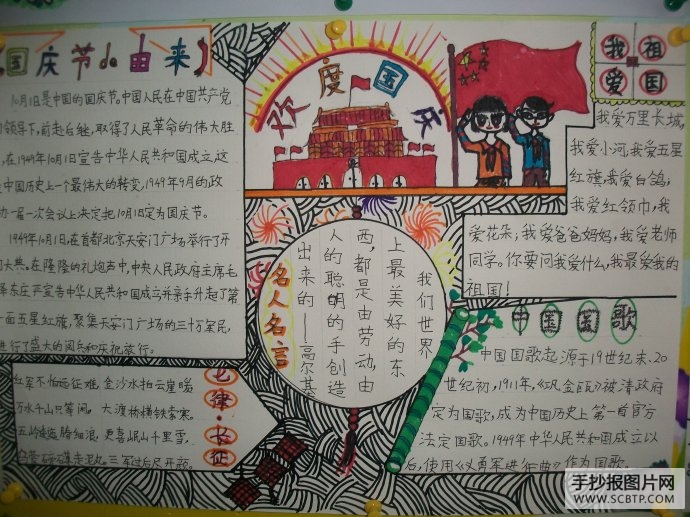 国庆节do由来
10月1日是中国的国庆节,中国人民在中国共产党
领导下,前赴后继,取得了人民革命的伟大胜
,在1949年10月1日宣告中华人民共和国成立,这
中国历史上一个最伟大的转变,1949年9月的政
一届一次会议上决定把10月1日定为国庆节。
1949年10月1日,在首都北京天安门广场举行了开
大典。在隆隆的礼炮声中,中央人民政府主席毛
泽东庄严宣告中华人民共和国成立并亲手升起了第
一面五星红旗,聚集天安门广场的三十万军民,
进行了盛大的阅兵和庆祝旅行。
欢度国庆
我爱祖国
我爱万里长城,
我爱小河,我爱五星
红旗,我爱白鸽,
我爱红领巾,我
爱花朵,我爱爸爸妈妈,我爱老师
同学。你要问我爱什么,我最爱我的
祖国!
名人名言
我们世界
上最美好的东
西,都是由劳动,由
人的聪明的手创造
出来的——高尔基
七律·长征
红军不怕远征难,金沙水拍云崖暖,
万水千山只等闲。大渡桥横铁索寒。
五岭逶迤腾细浪,更喜岷山千里雪,
走泥丸。三军过后尽开颜。
中国国歌
中国国歌起源于19世纪末、20
世纪初,1911年,《巩金瓯》被清政府
定为国歌,成为中国历史上第一首官方
法定国歌。1949年中华人民共和国成立以
后,使用《义勇军进行曲》作为国歌。
手抄报图片网
WWW.SCBTP.COM